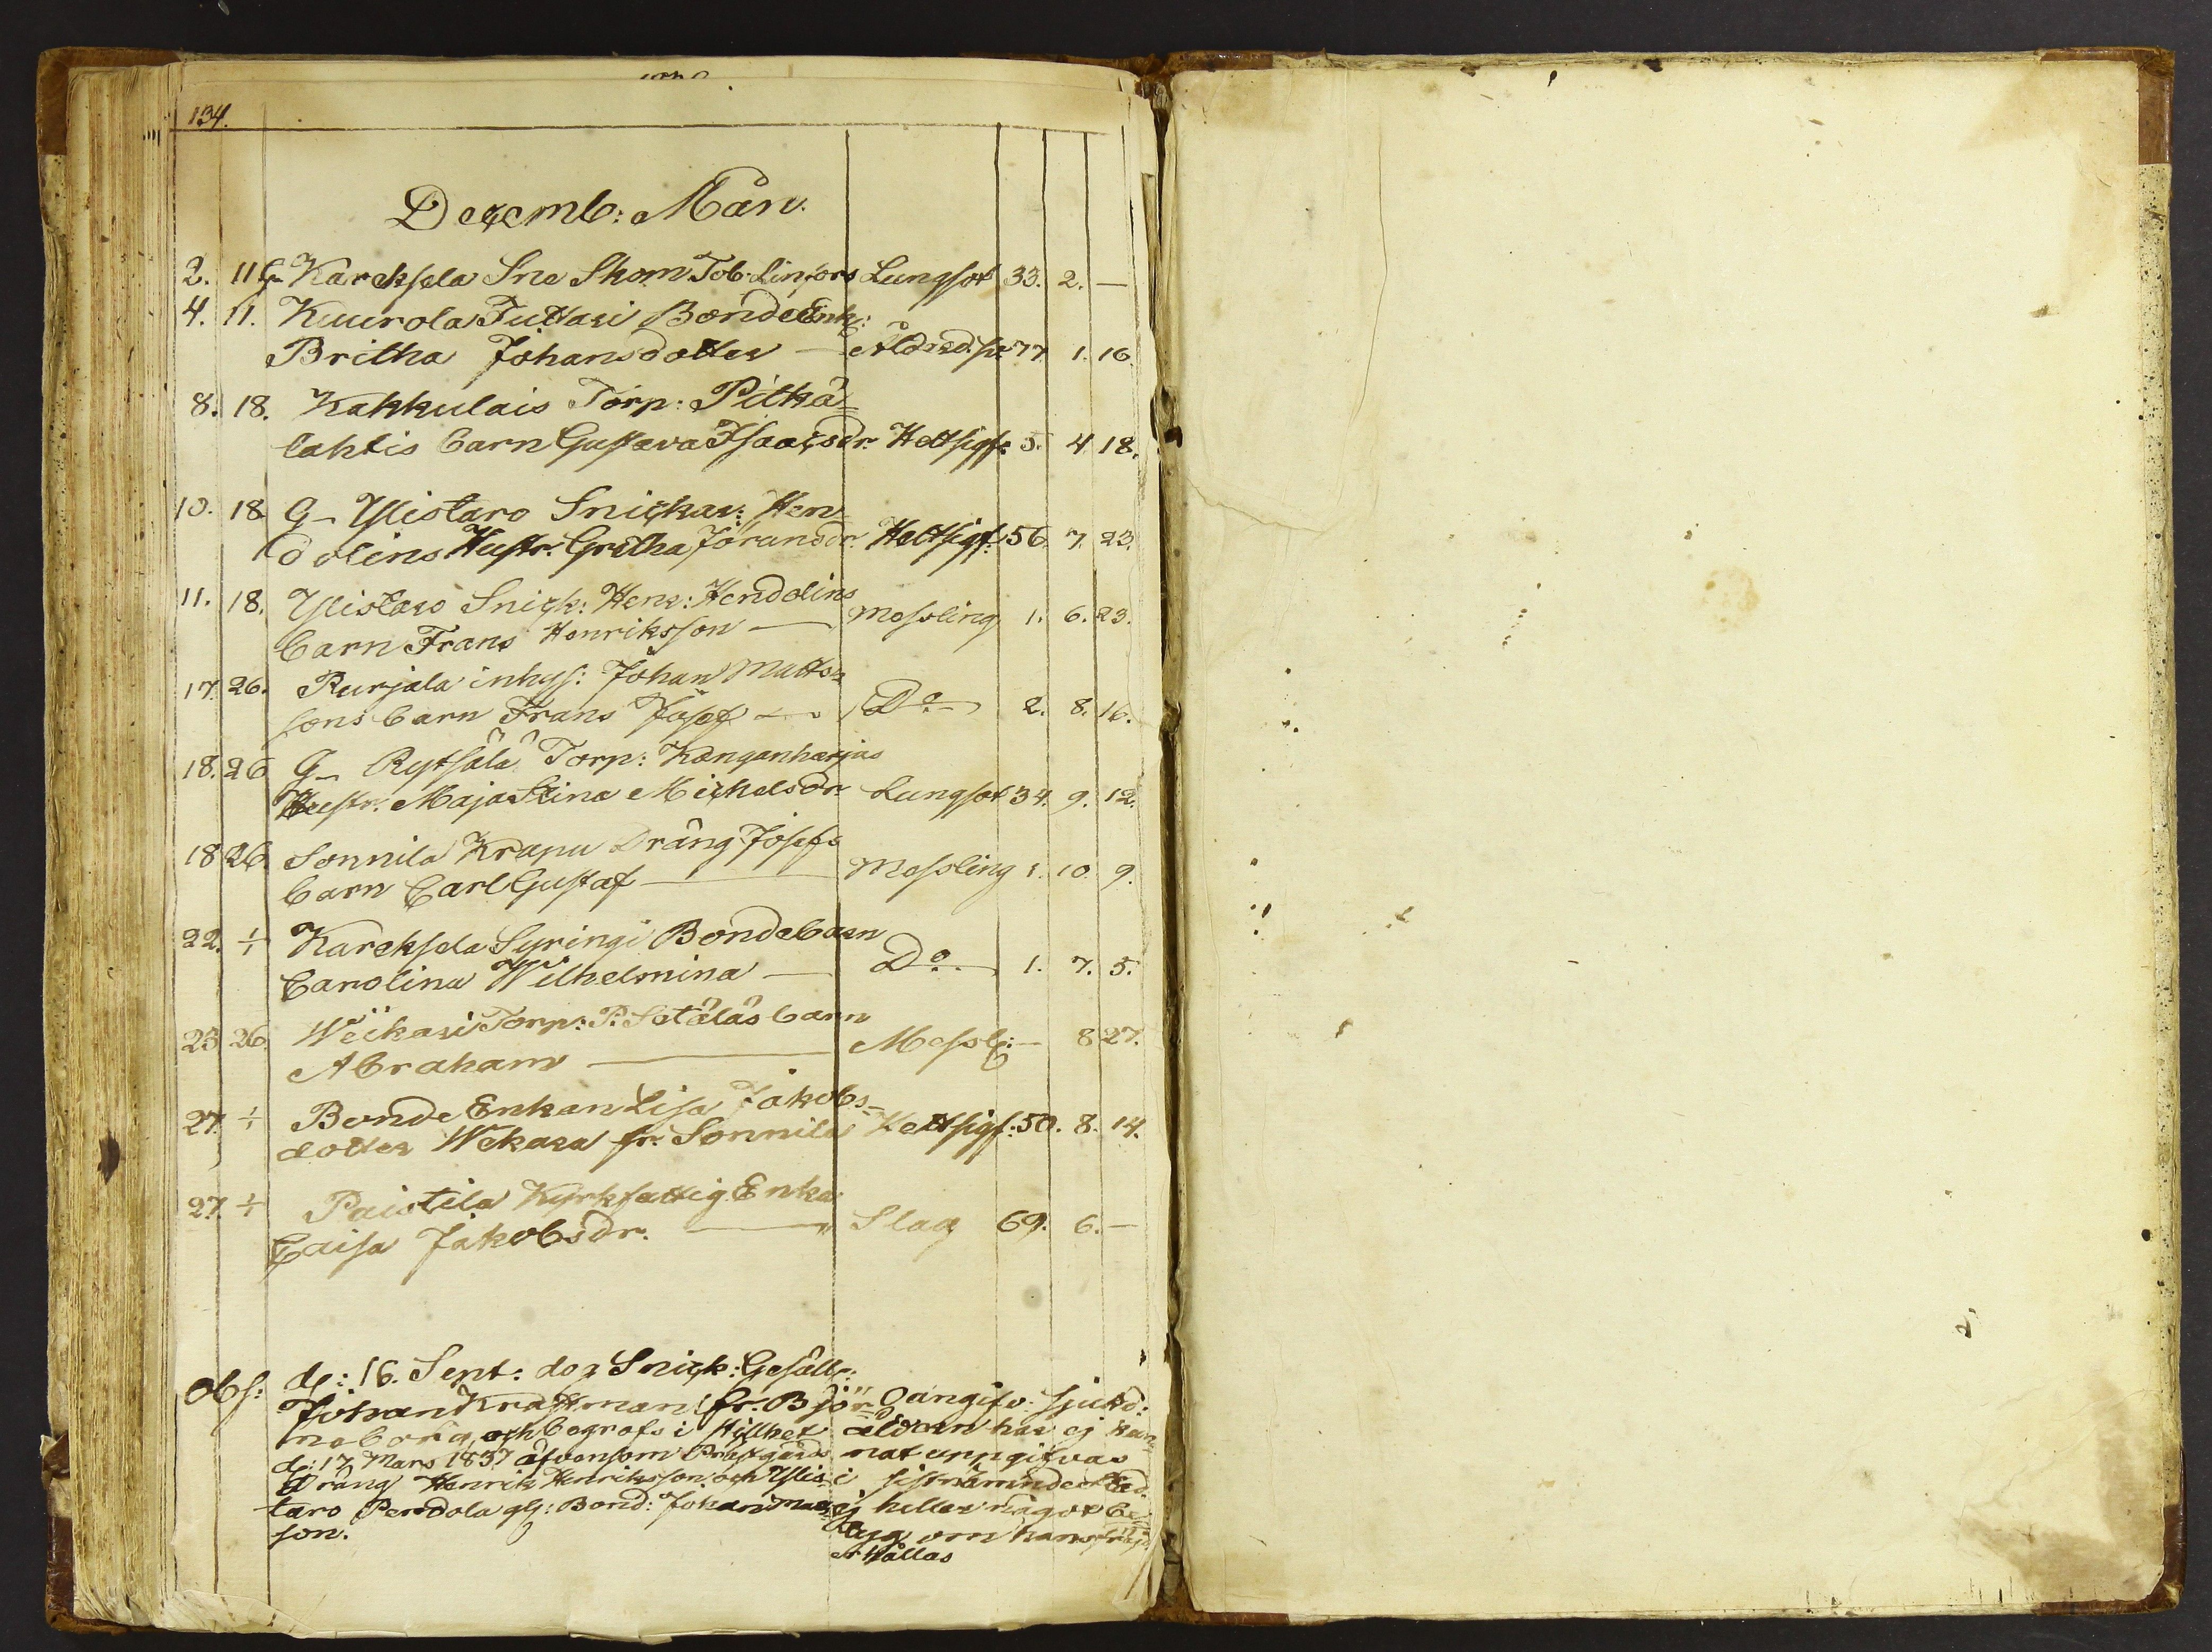 134.
Decemb: Mån.
2. 11 G- Kareksela Sne Skom Tob. Linfors Lungsot 33. 2. —
4. 11. Kuurola Tuttari Bonde Enk:
Britha Johansdotter — Ålderd. 77 1. 16.
8. 18. Kakkulais Torp: Pitkä-
lahtis barn Gustava Isaacsdr. Hettsigf: 5. 4 18.
10. 18 G- Ylistaro Snickar: Hen-
dolins Hustr. Gretha Jöransdr. Hettsigf: 56. 7. 23.
11. 18. Ylistaro Snick: Henr: Hendolins
barn Frans Henriksson — Messling 1. 6. 23.
17. 26. Purjala inhys: Johan Matts-
sons barn Frans Josef — Do 2. 8. 16.
18. 26 G- Rytsälä Torp: Kanganharjus
Hustr. Maja Stina Michelsdr. Lungsot 34. 9. 12.
18 26. Sonnila Krapu Dräng Josefs
barn Carl Gustaf — Messling 1. 10. 9.
22. 1/1 Kareksela Syringi Bondebarn
Carolina Wilhelmina — Do 1. 7. 5.
23 26. Weikari Torp: P. Setäläs barn
Abraham — Messl: — 8 27.
27. 1/1 Bonde Enkan Lisa Jakobs-
dotter Wekara fr. Sonnila Hettsigf: 50. 8. 14.
27. 1/1 Paistila Kyrkfattig Enka
Caisa Jakobsdr. — Slag 69. 6. —
Obs: d: 16. Sept: dog Snick: Gesälle
Johan Kraftman fr. Björ- Oangifv: sjukd:
neborg, och begrofs i stillhet åldern har ej kun-
d: 17 Mars 1837 äfvensom Prästgårds nat uppgifvas
Dräng Henrik Henriksson och Ylis- i sistnämnde
taro Perdola gl: Bond: Johan Mats- ej heller något be-
son. tyg om hans frejd
erhållas